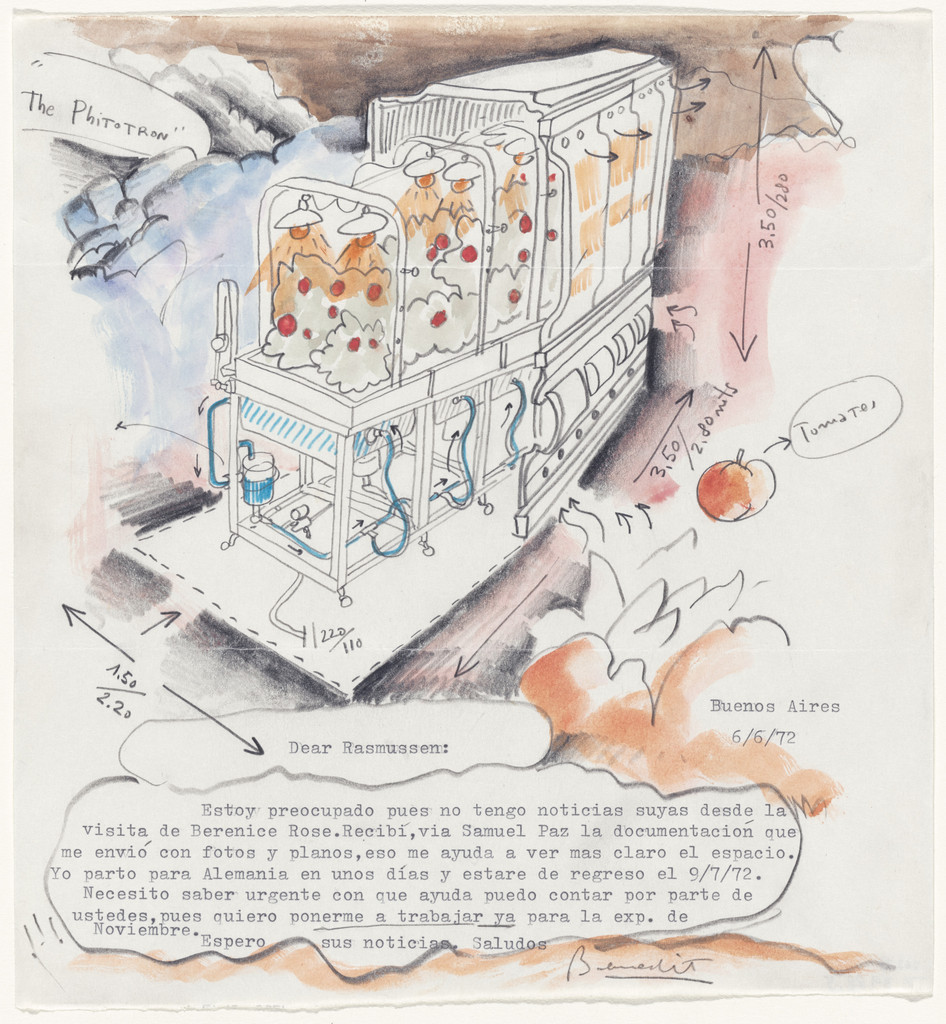 "The Phitotron"
3.50/280
3.50/2.80 mts
Tomates
220/110
1.50
2.20
Buenos Aires
6/6/72
Dear Rasmussen:
Estoy preocupado pues no tengo noticias suyas desde la
visita de Berenice Rose.Recibí,via Samuel Paz la documentación que
me envió con fotos y planos,eso me ayuda a ver mas claro el espacio.
Yo parto para Alemania en unos días y estare de regreso el 9/7/72.
Necesito saber urgente con que ayuda puedo contar por parte de
ustedes,pues quiero ponerme a trabajar ya para la exp. de
Noviembre.
Espero sus noticias. Saludos
Benedit
!!!